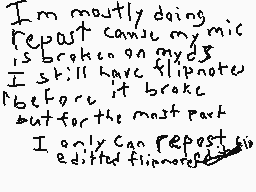 I m mostly doing
repost cause my mic
is broken on my d3
I still have flipnotes
before it broke
but for the most part
I only can repost
editted flipnotes